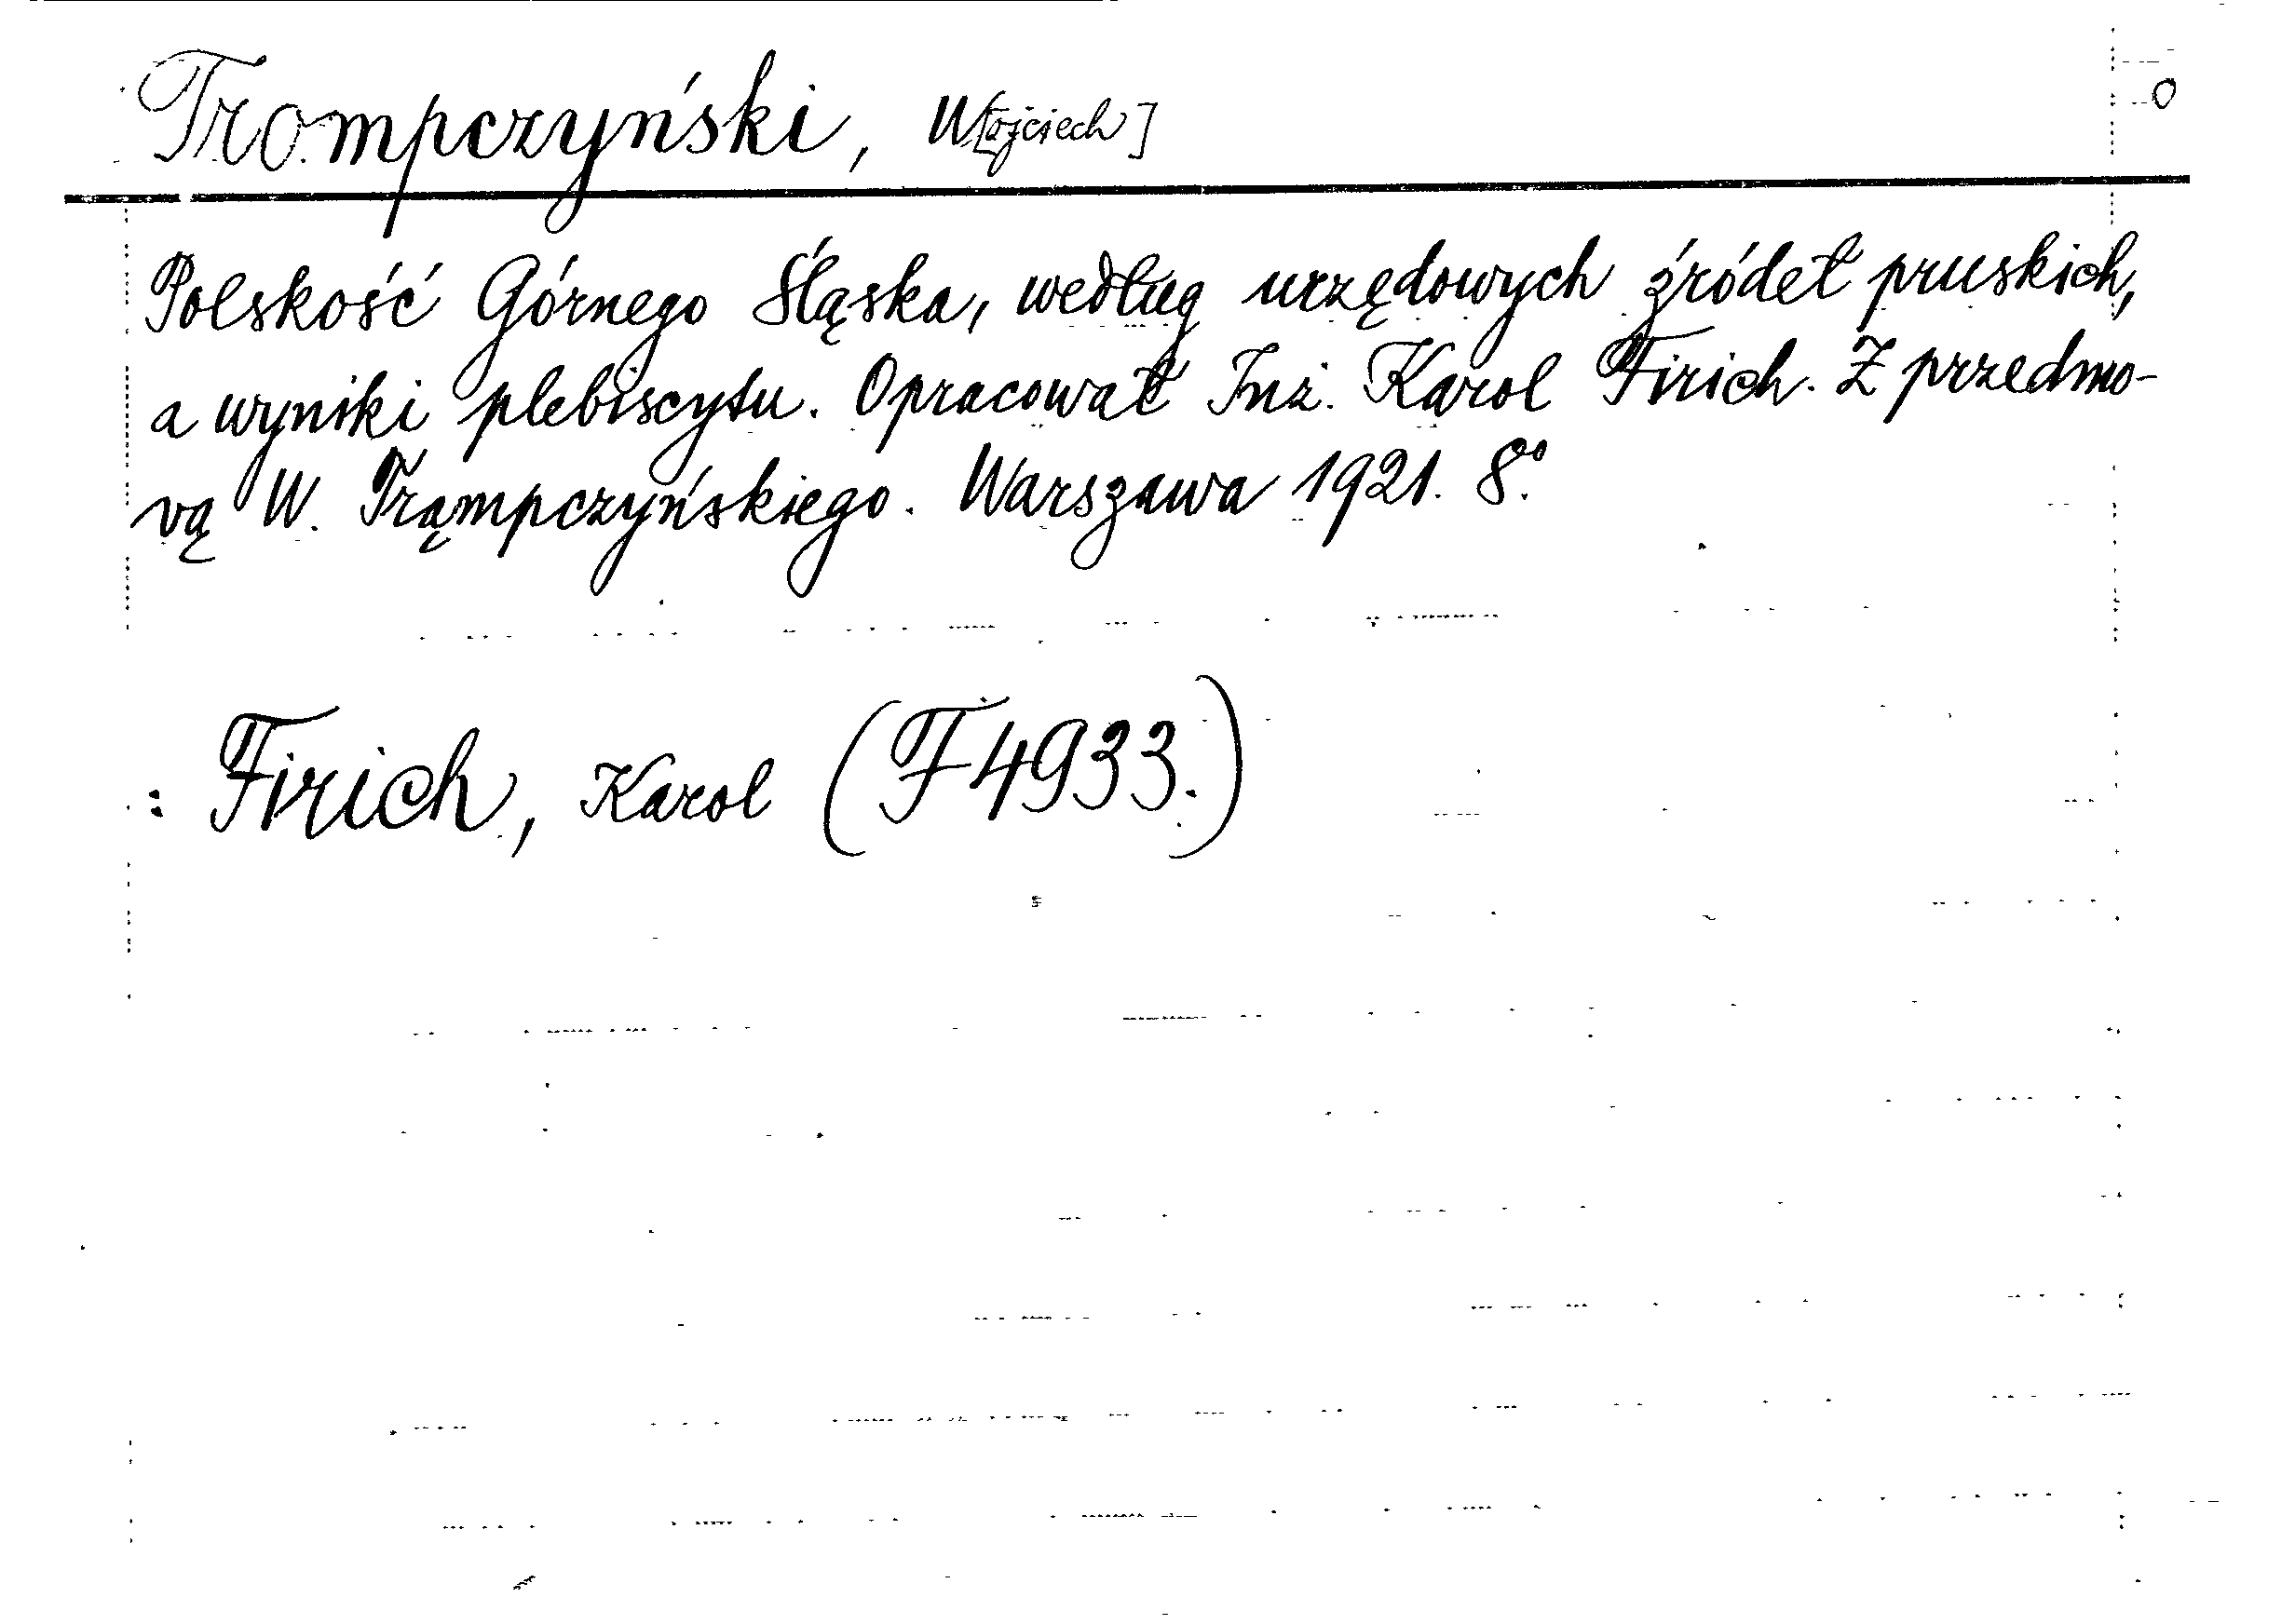 Trompczyński, W[ojciech] O
Polskość Górnego Śląska, według urzędowych źródeł pruskich,
a wyniki plebiscytu. Opracował Inż. Karol Firich. Z przedmo-
vą W. Trąmpczyńskiego. Warszawa 1921. 8º.
: Firich, Karol (F 4933.)